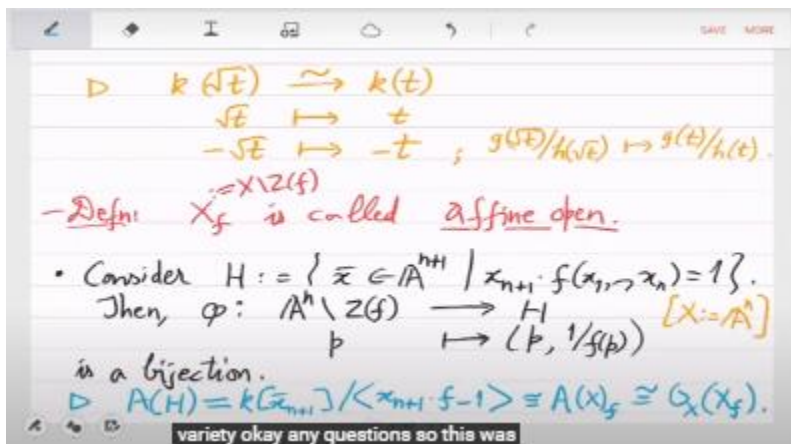 SAVE MORE
▷ k(√t) ⥲ k(t)
√t ↦ t
-√t ↦ -t ; g(√t)/h(√t) ↦ g(t)/h(t).
:=X\Z(f)
- Defn: X_f is called affine open.
• Consider H := { x̄ ∈ 𝔸^{n+1} | x_{n+1}·f(x_1,⋯,x_n)=1}.
Then, φ: 𝔸^n \ Z(f) ⟶ H [X:=𝔸^n]
p ↦ (p, 1/f(p))
is a bijection.
▷ A(H) = k[x̄_{n+1}]/<x_{n+1}·f-1> ≅ A(X)_f ≅ 𝒪_X(X_f).
variety okay any questions so this was